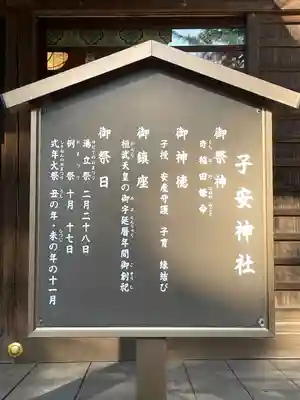 子安神社
御祭神
奇稲田姫命
御神徳
子授 安産守護 子育 縁結び
御鎮座
桓武天皇の御字延暦年間御創祀
御祭日
湯立祭 二月二十八日
例祭 十月 十七日
式年大祭 丑の年・未の年の十一月